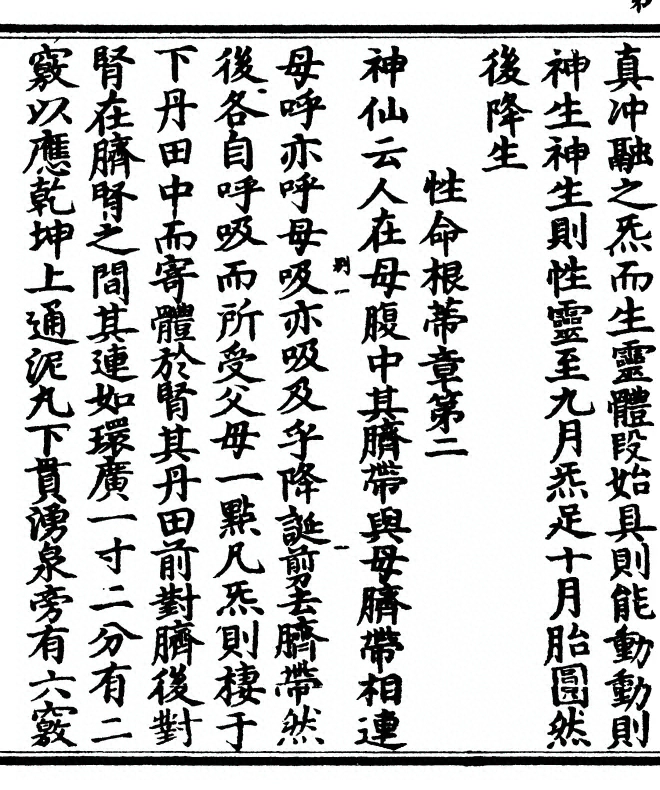 真冲融之炁而生靈體段始具則能動動則
神生神生則性靈至九月炁足十月胎圓然
後降生
性命根蒂章第二
神仙云人在母腹中其臍帶與母臍帶相連
母呼亦呼母吸亦吸及乎降誕剪去臍帶然
後各自呼吸而所受父母一點凡炁則棲于
下丹田中而寄體於腎其丹田前對臍後對
腎在臍腎之間其連如環廣一寸二分有二
竅以應乾坤上通泥丸下貫湧泉旁有六竅